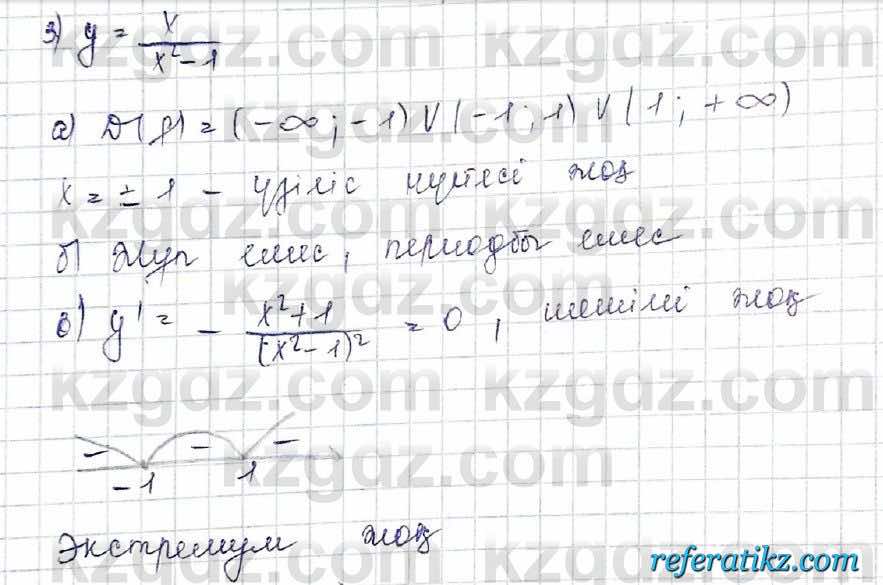 3) y = x / (x² - 1)
а) D(f) = (-∞; -1) ∨ (-1; 1) ∨ (1; +∞)
x = ± 1 - үзіліс нүктесі жоқ
б) Жұп емес, периодты емес
в) y' = - (x² + 1) / (x² - 1)² = 0, шешімі жоқ
- - -
-1 1
Экстремум жоқ
kzgdz.com
referatikz.com